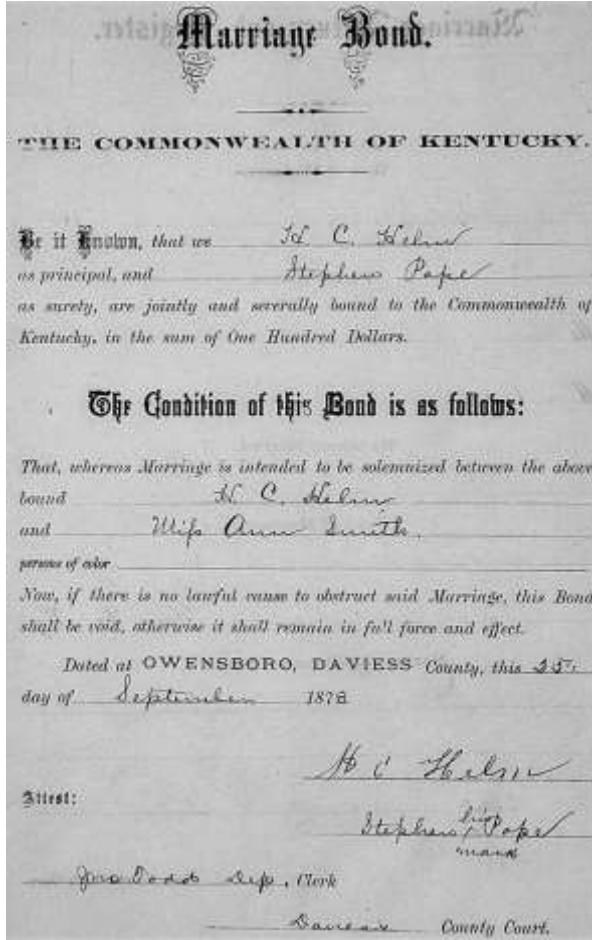 Marriage Bond.
THE COMMONWEALTH OF KENTUCKY.
Be it Known, that we H C. Helm
as principal, and Stephen Pope
as surety, are jointly and severally bound to the Commonwealth of
Kentucky, in the sum of One Hundred Dollars.
The Condition of this Bond is as follows:
That, whereas Marriage is intended to be solemnized between the above
bound H C. Helm
and Miss Ann Smith.
persons of color
Now, if there is no lawful cause to obstruct said Marriage, this Bond
shall be void, otherwise it shall remain in full force and effect.
Dated at OWENSBORO, DAVIESS County, this 25
day of September 1878
H C Helm
Attest:
his
Stephen x Pope
mark
Todd Dep. Clerk
Daviess County Court.